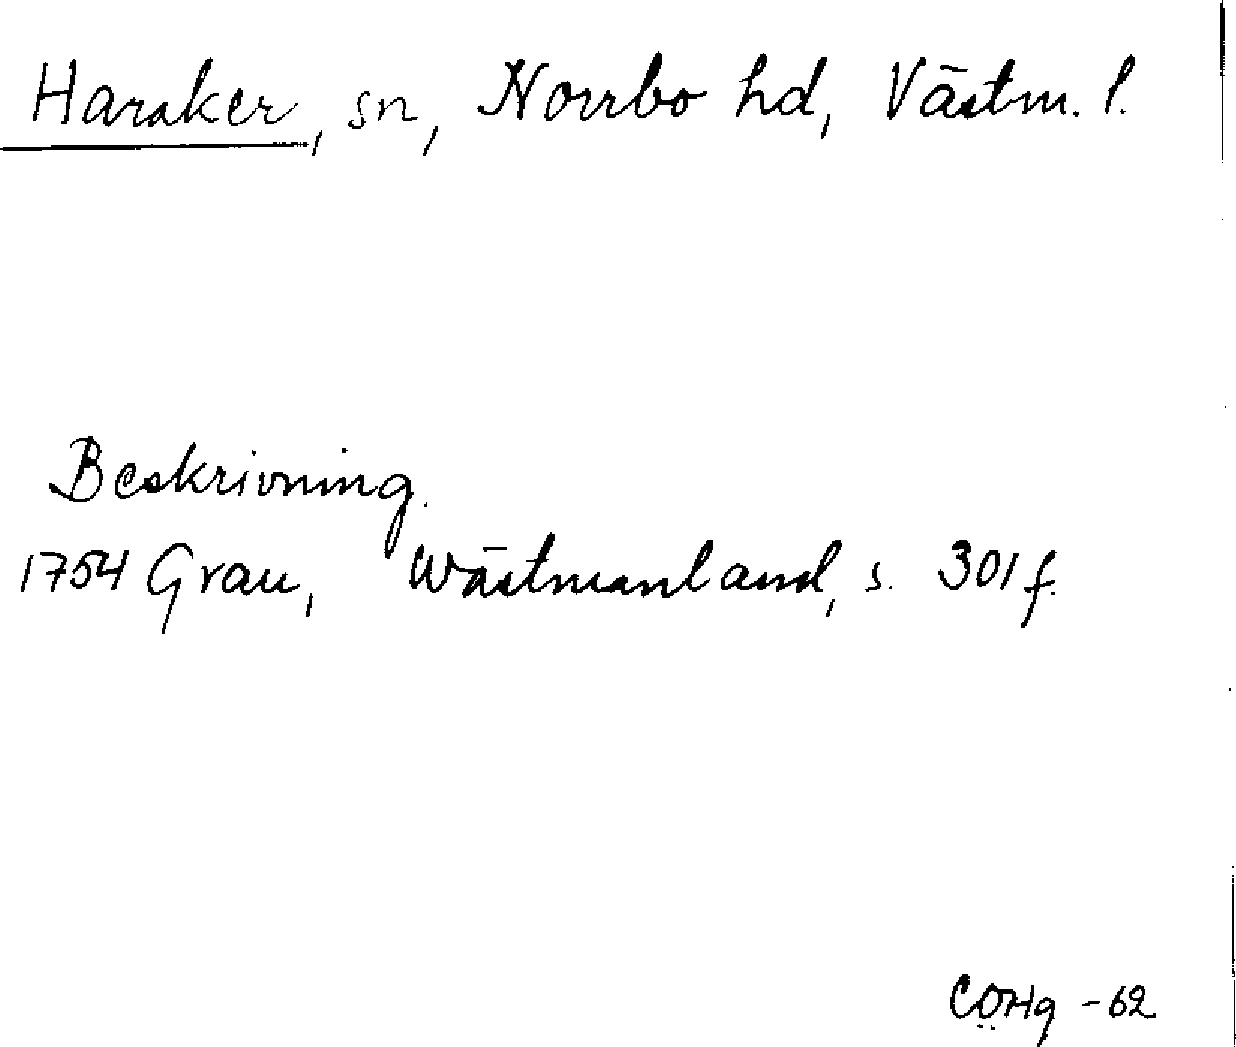 Haraker, sn, Norrbo hd, Västm. l.
Beskrivning.
1754 Grau, Wästmanland, s. 301 f.
CÖHg -62